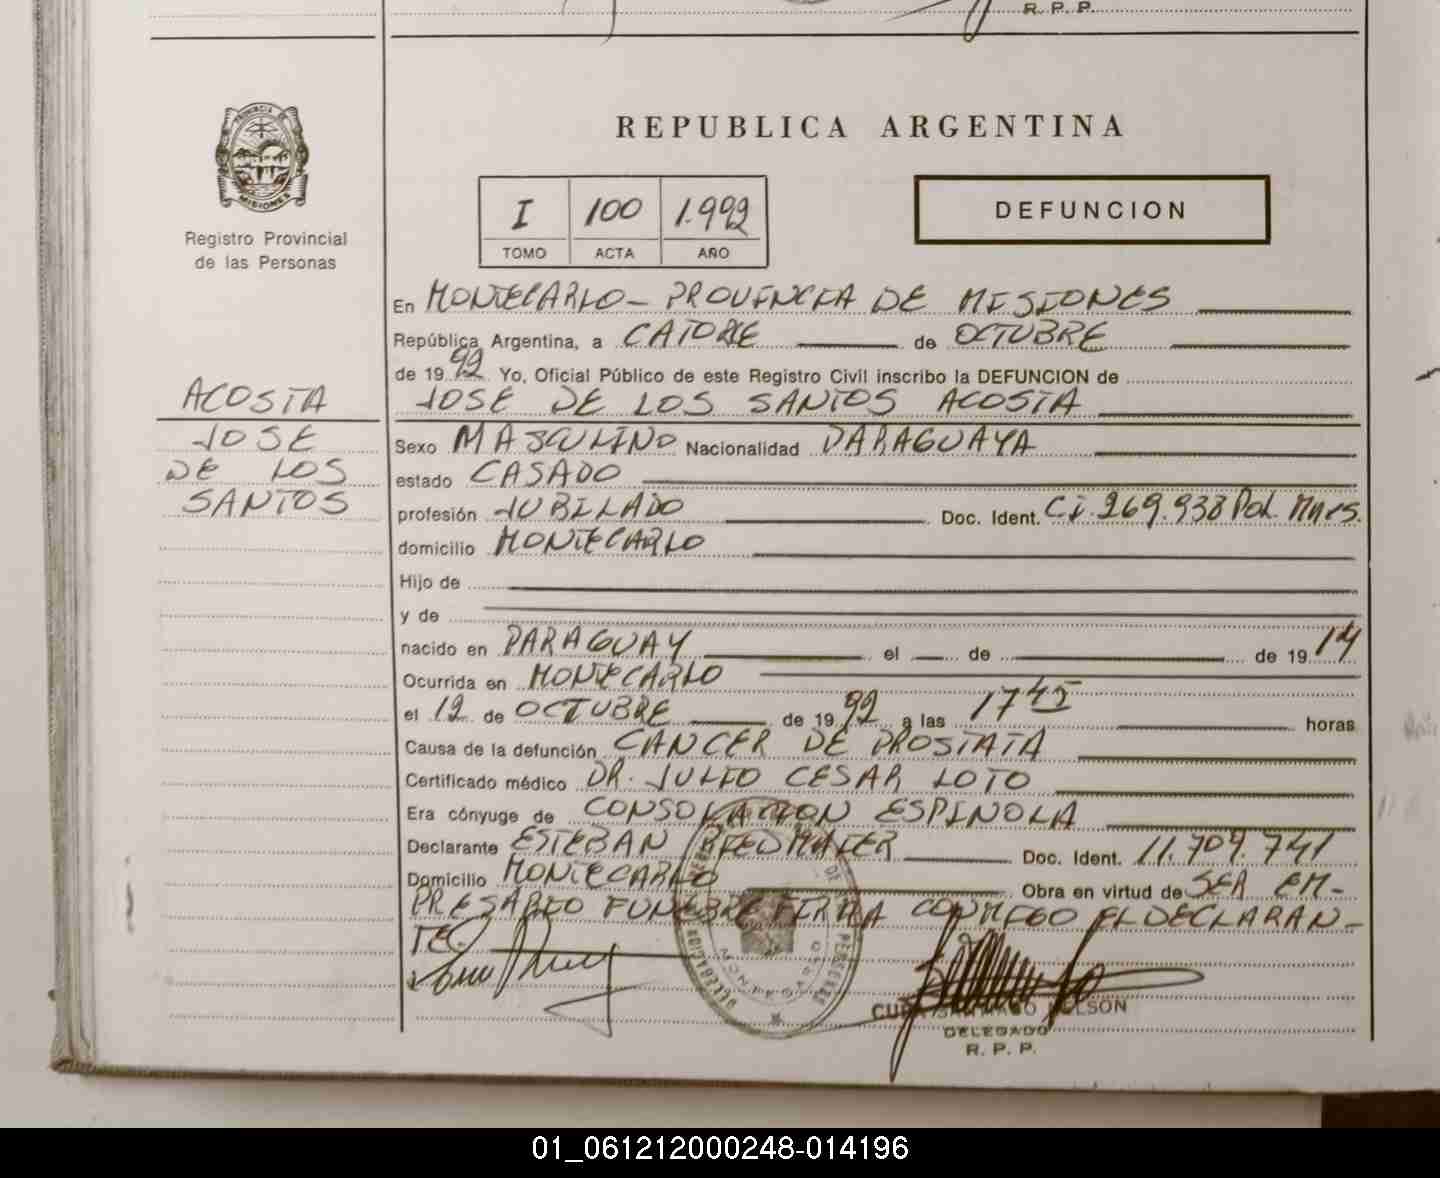 R. P. P.
PROVINCIA DE
MISIONES
Registro Provincial
de las Personas
REPUBLICA ARGENTINA
I 100 1.992
TOMO ACTA AÑO
DEFUNCION
En MONTECARLO - PROVINCIA DE MISIONES
República Argentina, a CATORCE de OCTUBRE
de 1992 Yo, Oficial Público de este Registro Civil inscribo la DEFUNCION de
JOSE DE LOS SANTOS ACOSTA
ACOSTA
JOSE
DE LOS
SANTOS
Sexo MASCULINO Nacionalidad PARAGUAYA
estado CASADO
profesión JUBILADO Doc. Ident. CI. 269.938 Pol. Mnes.
domicilio MONTECARLO
Hijo de
y de
nacido en PARAGUAY el de de 1914
Ocurrida en MONTECARLO
el 12 de OCTUBRE de 1992 a las 17 45 horas
Causa de la defunción CANCER DE PROSTATA
Certificado médico DR. JULIO CESAR LOTO
Era cónyuge de CONSOLACION ESPINOLA
Declarante ESTEBAN Doc. Ident. 11.709.741
Domicilio MONTECARLO Obra en virtud de SER EM-
PRESARIO FUNEBRE FIRMA CONMIGO EL DECLARAN-
TE
NELSON
DELEGADO
R. P. P.
01_061212000248-014196